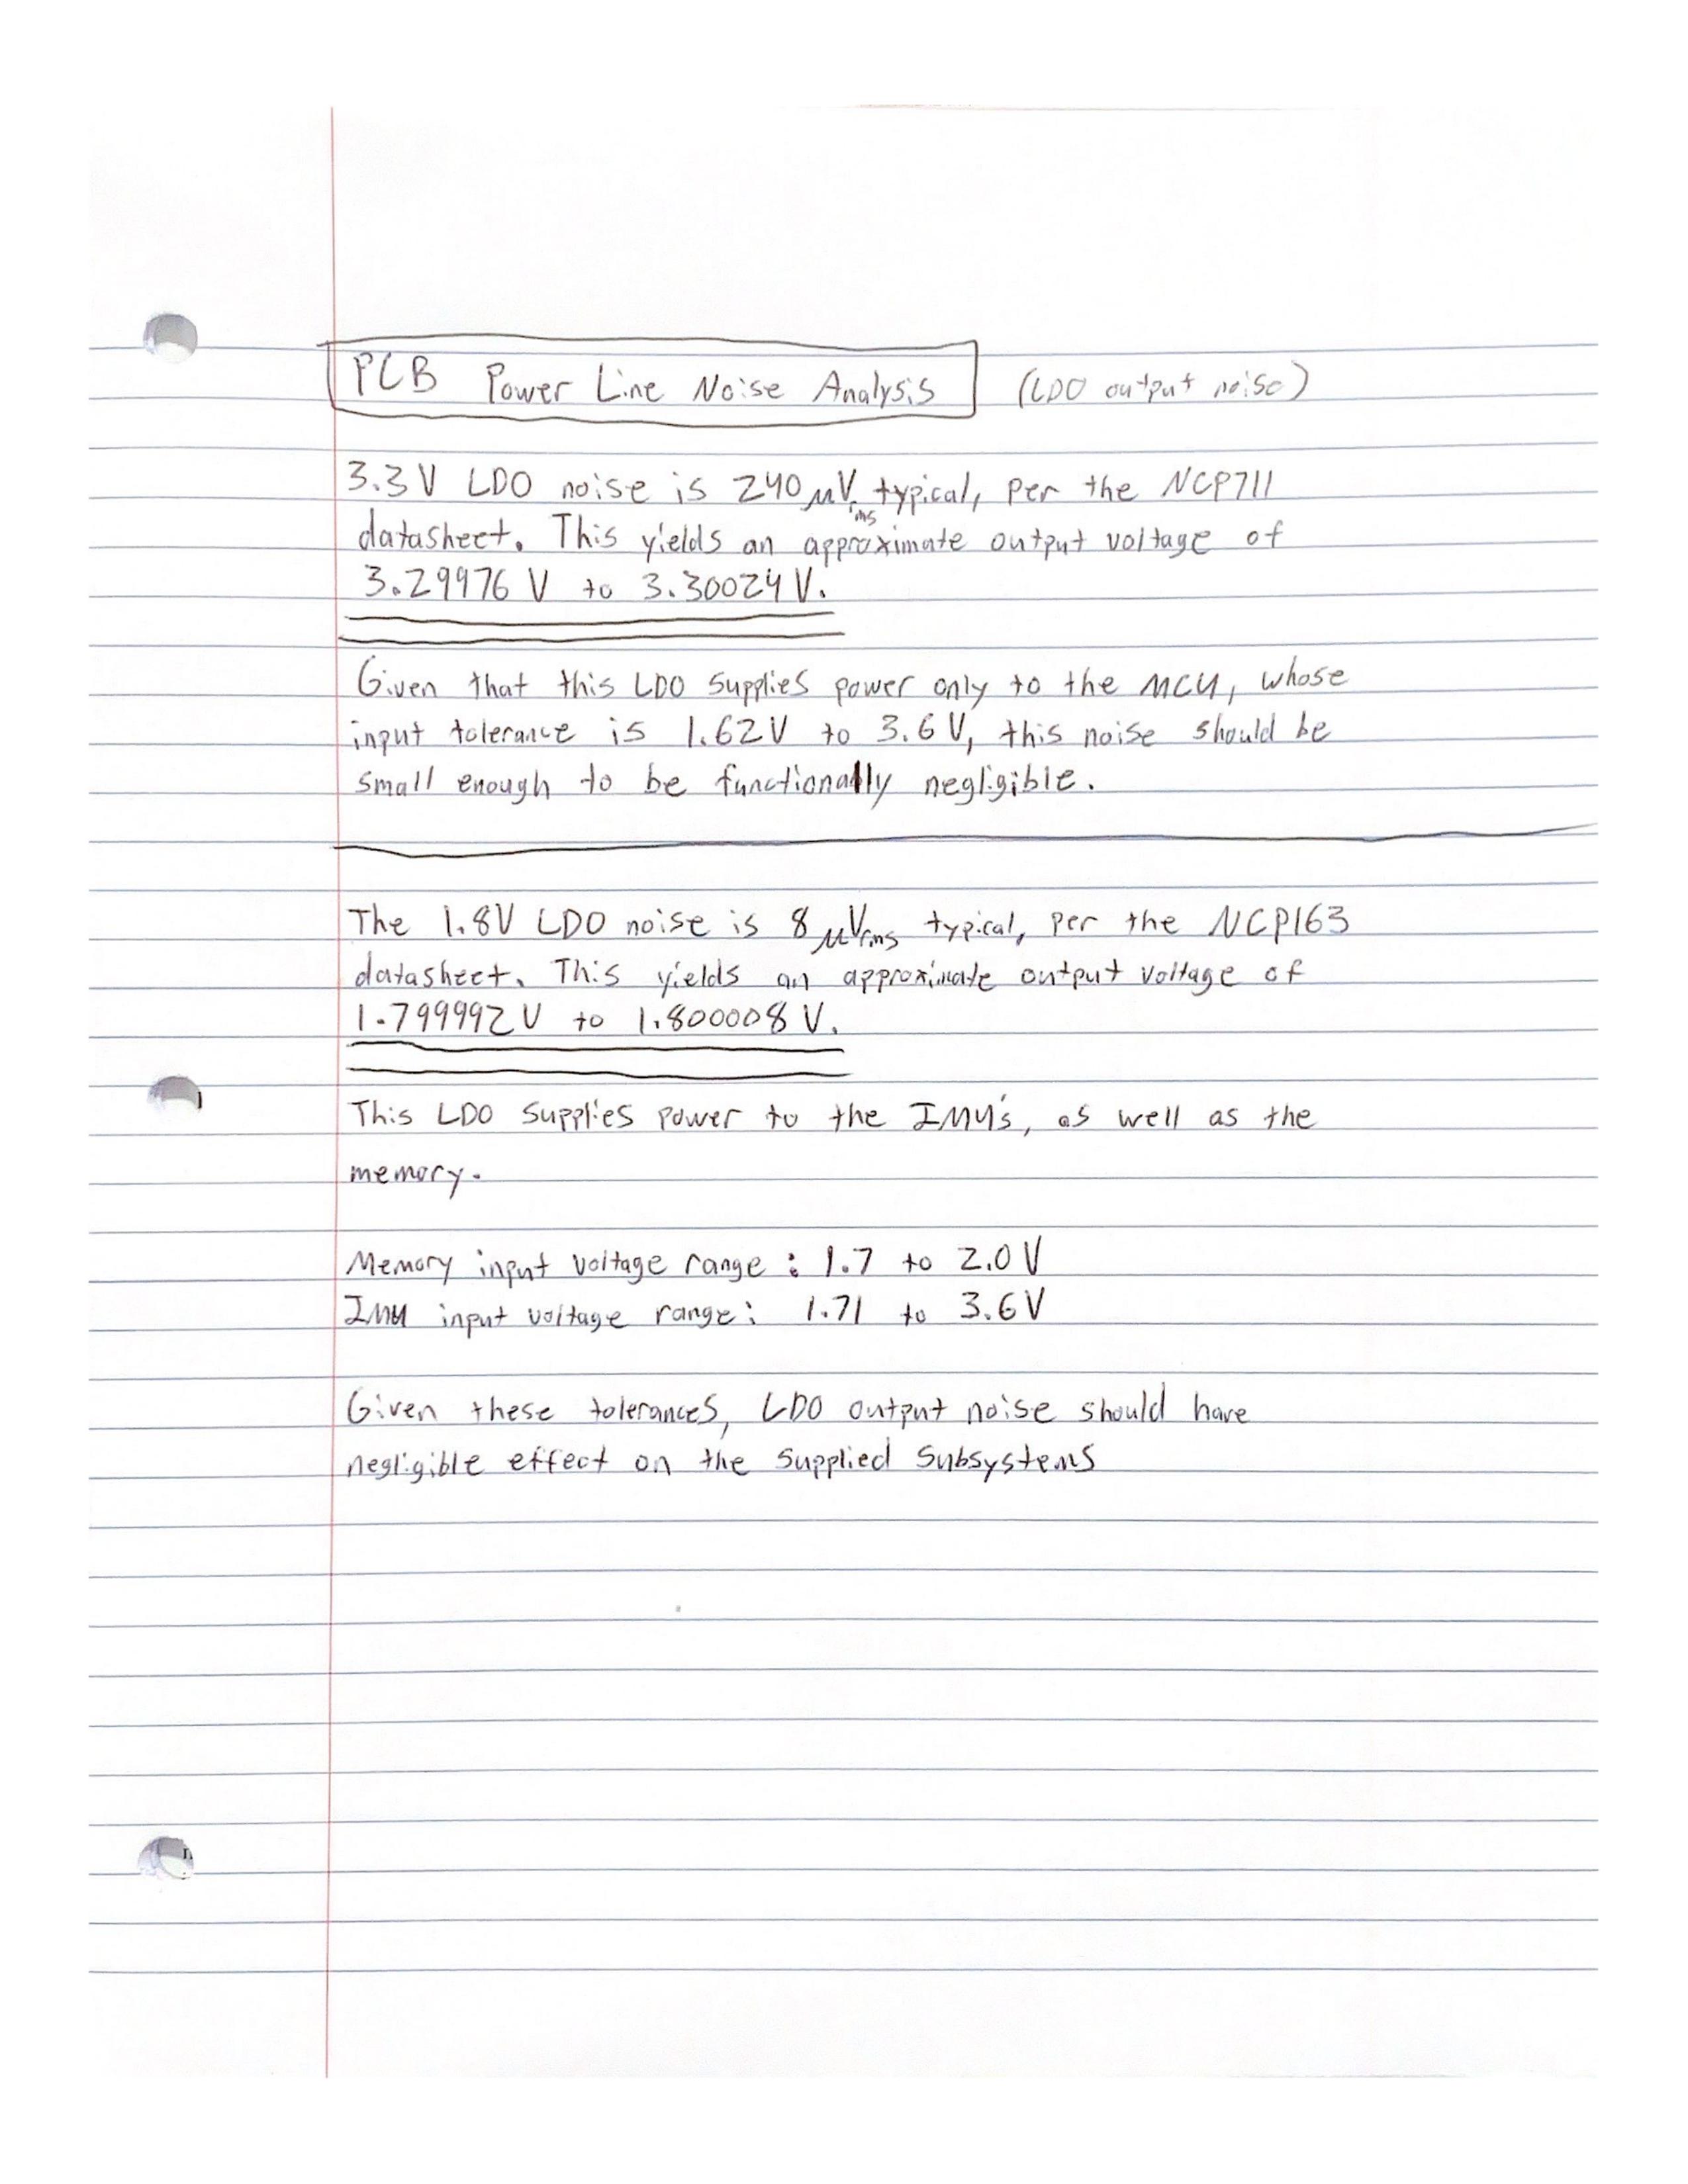 PCB Power Line Noise Analysis (LDO output noise)
3.3V LDO noise is 240 μVrms typical, per the NCP711
datasheet. This yields an approximate output voltage of
3.29976 V to 3.30024 V.
Given that this LDO supplies power only to the MCU, whose
input tolerance is 1.62V to 3.6V, this noise should be
small enough to be functionally negligible.
The 1.8V LDO noise is 8 μVrms typical, per the NCP163
datasheet. This yields an approximate output voltage of
1.799992V to 1.800008 V.
This LDO supplies power to the IMU's, as well as the
memory.
Memory input voltage range: 1.7 to 2.0 V
IMU input voltage range: 1.71 to 3.6V
Given these tolerances, LDO output noise should have
negligible effect on the supplied subsystems